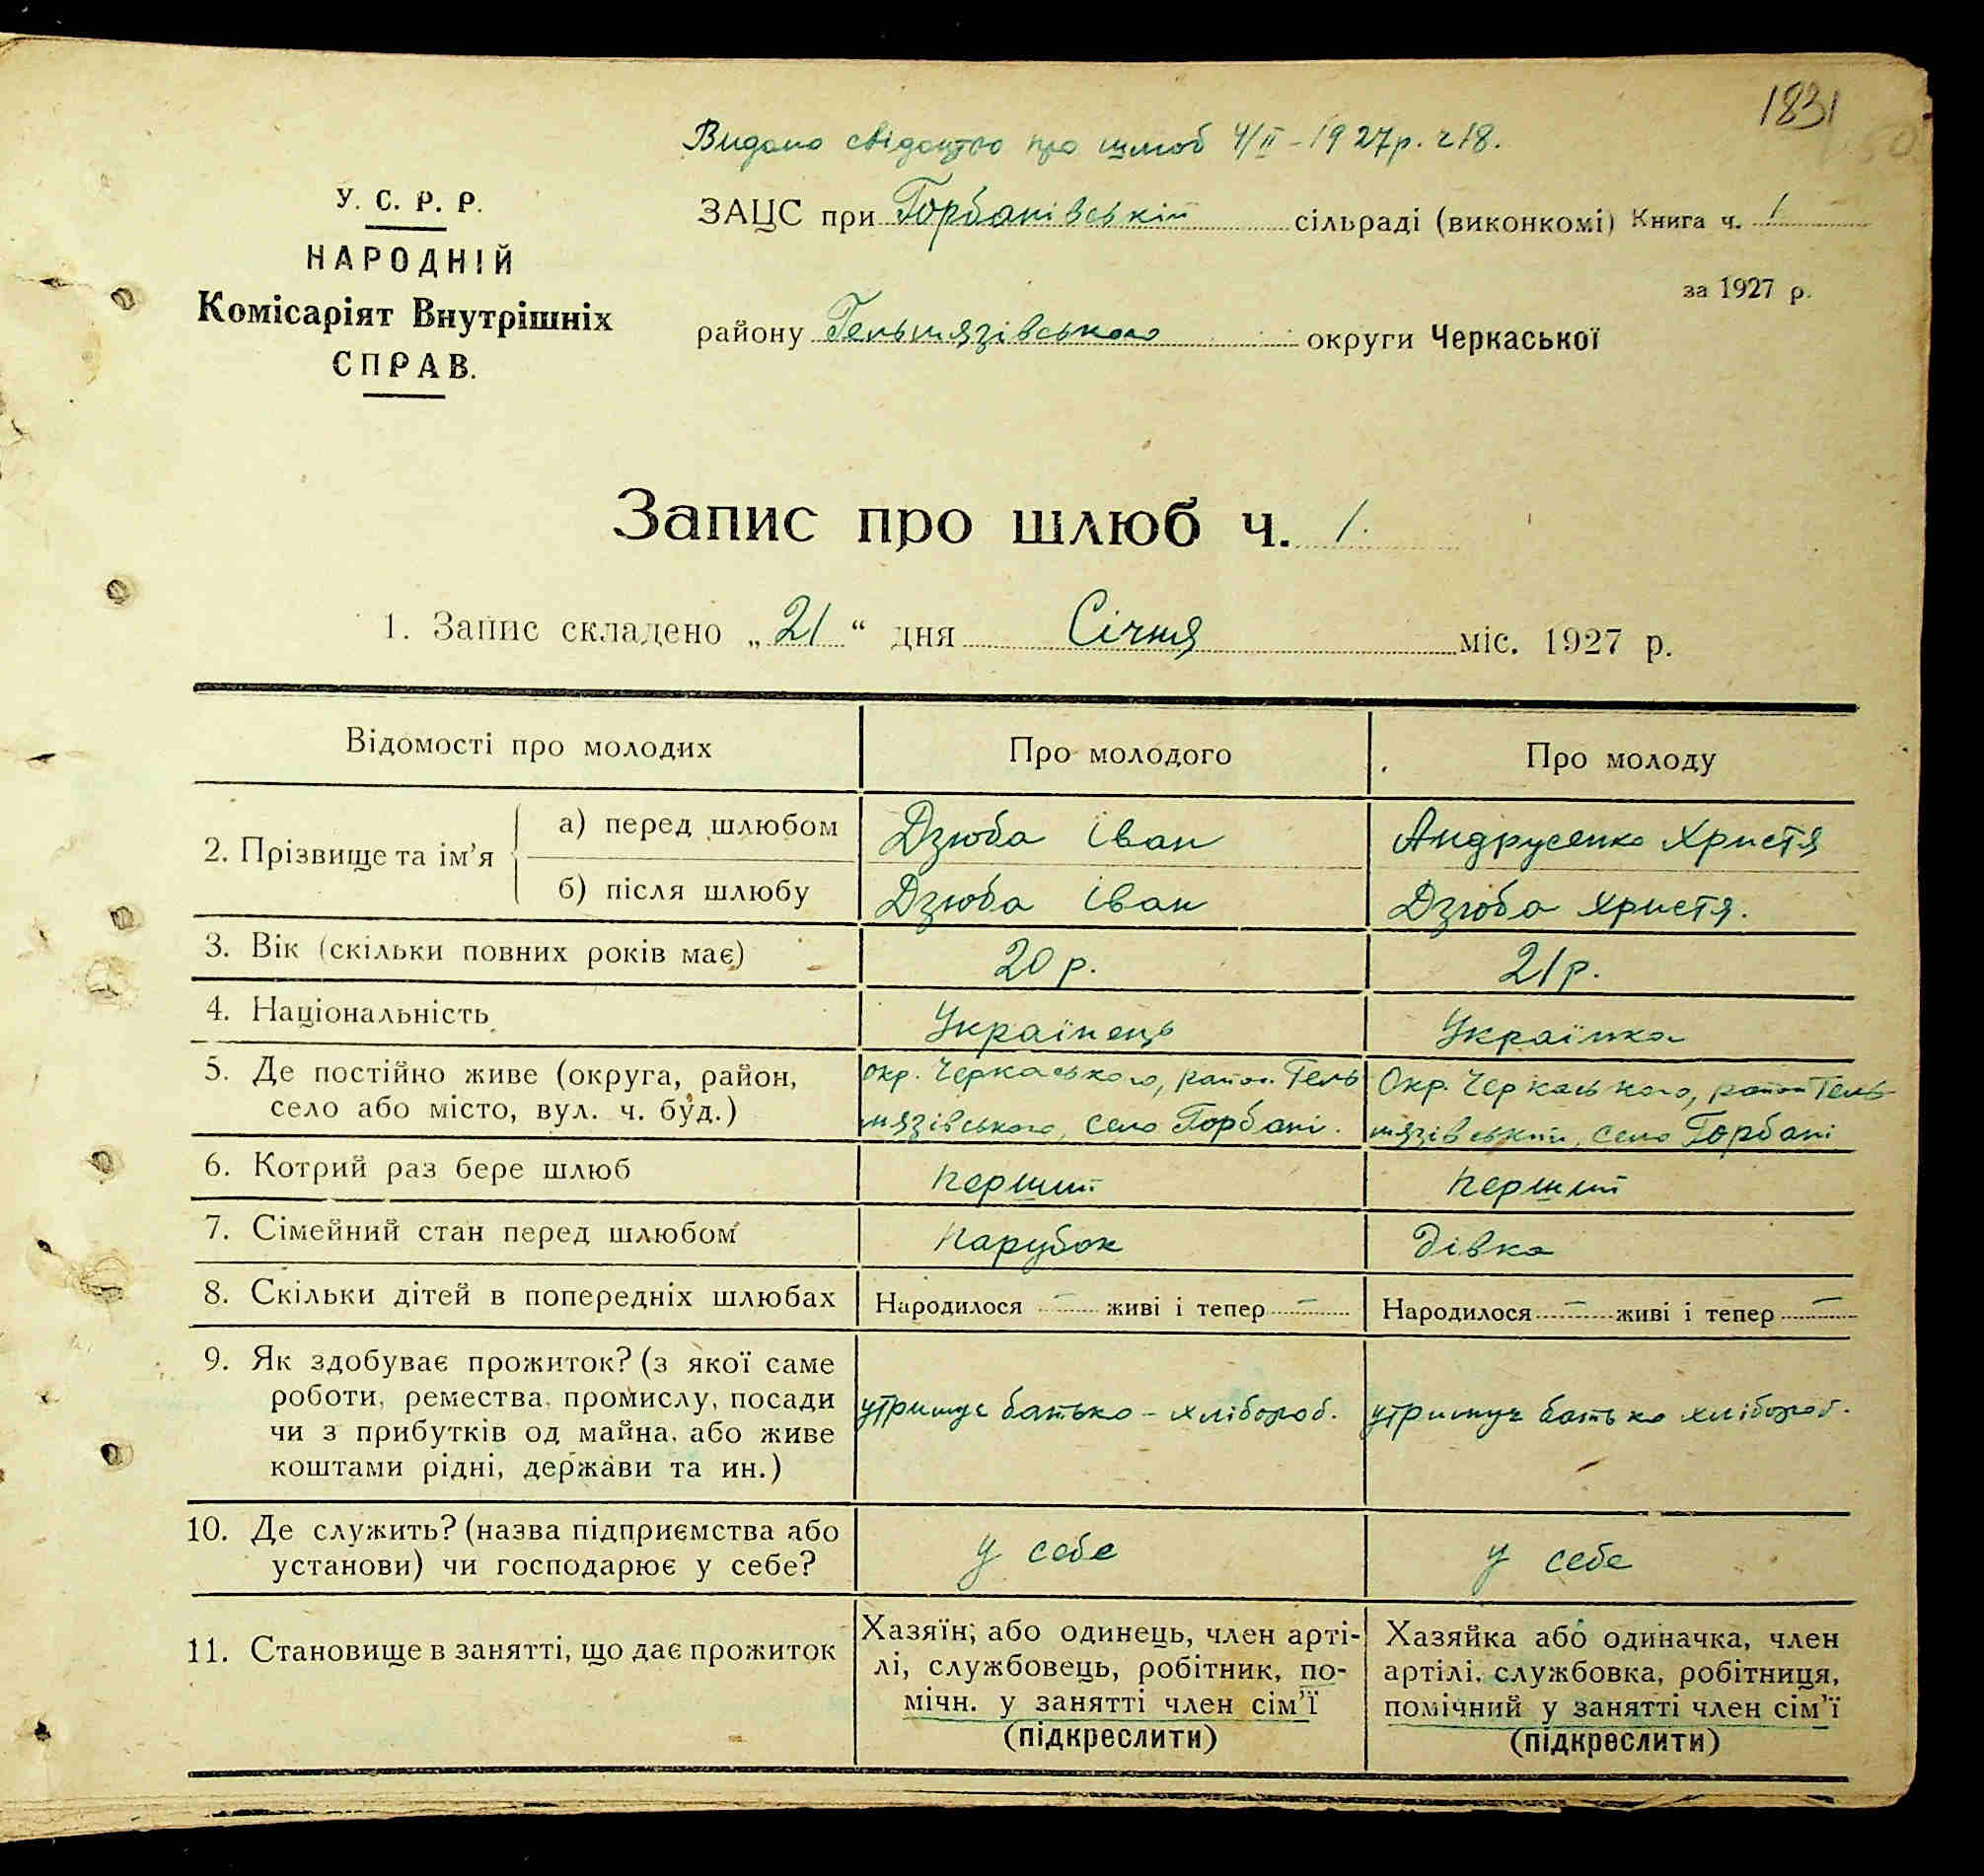 1831
Видано свідоцтво про шлюб 4/II - 1927р. ч 18.
У. С. Р. Р.
НАРОДНІЙ
Комісаріят Внутрішніх
СПРАВ.
ЗАЦС при Горбанівській сільраді (виконкомі) Книга ч. 1
за 1927 р.
району Гельмязівського округи Черкаської
Запис про шлюб ч. 1.
1. Запис складено „21“ дня Січня міс. 1927 р.
Відомості про молодих Про молодого Про молоду
2. Прізвище та ім’я
а) перед шлюбом Дзюба Іван Андрусенко Христя
б) після шлюбу Дзюба Іван Дзюба Христя.
3. Вік (скільки повних років має) 20 р. 21 р.
4. Національність Українець Українка
5. Де постійно живе (округа, район,
село або місто, вул. ч. буд.)
окр. Черкаського, район. Гель
мязівського, село Горбані.
Окр. Черкаського, район Гель
мязівський, село Горбані
6. Котрий раз бере шлюб перший перший
7. Сімейний стан перед шлюбом парубок дівка
8. Скільки дітей в попередніх шлюбах Народилося — живі і тепер — Народилося — живі і тепер —
9. Як здобуває прожиток? (з якої саме
роботи, ремества, промислу, посади
чи з прибутків од майна, або живе
коштами рідні, держави та ин.)
утримує батько - хлібороб.
утримує батько хлібороб.
10. Де служить? (назва підприємства або
установи) чи господарює у себе?
у себе
у себе
11. Становище в занятті, що дає прожиток
Хазяїн, або одинець, член арті-
лі, службовець, робітник, по-
мічн. у занятті член сім’ї
(підкреслити)
Хазяйка або одиначка, член
артілі, службовка, робітниця,
помічний у занятті член сім’ї
(підкреслити)